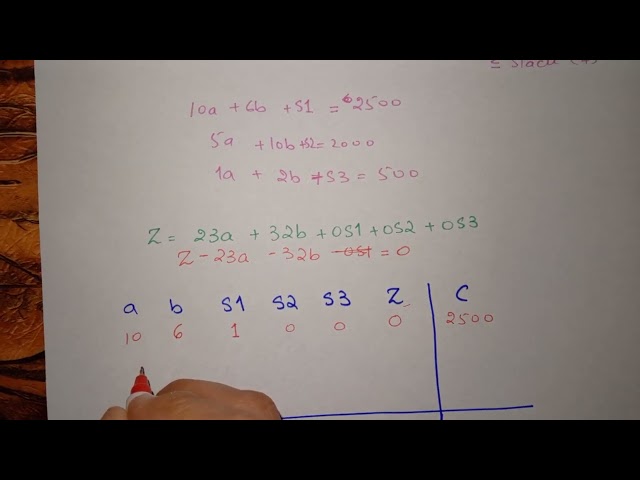 ≤ slack (+)
10a + 6b + S1 = 2500
5a + 10b + S2 = 2000
1a + 2b + S3 = 500
Z = 23a + 32b + 0S1 + 0S2 + 0S3
Z - 23a - 32b - 0S1 = 0
a b S1 S2 S3 Z C
10 6 1 0 0 0 2500